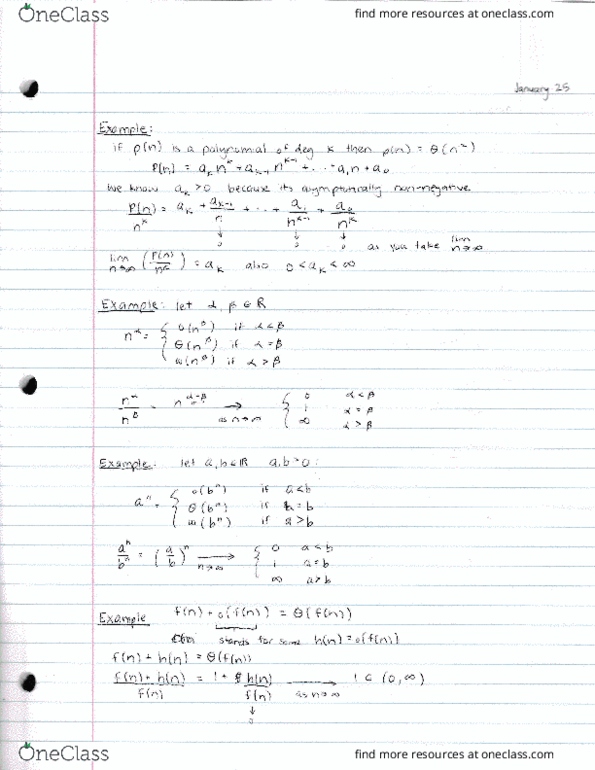 OneClass
find more resources at oneclass.com
January 25
Example:
if p(n) is a polynomial of deg k then p(n) = Θ(n^k)
P(n) = a_k n^k + a_{k-1} n^{k-1} + ... + a_1 n + a_0
we know a_k > 0 because its asymptotically non-negative
P(n)/n^k = a_k + a_{k-1}/n + ... + a_1/n^{k-1} + a_0/n^k
↓ ↓ ↓
0 0 0 as you take lim n→∞
lim n→∞ (P(n)/n^k) = a_k also 0 < a_k < ∞
Example: let α, β ∈ ℝ
n^α = { o(n^β) if α < β
Θ(n^β) if α = β
ω(n^β) if α > β
n^α/n^β = n^{α-β} → as n→∞ { 0 α < β
1 α = β
∞ α > β
Example: let a, b ∈ ℝ a, b > 0:
a^n = { o(b^n) if a < b
Θ(b^n) if a = b
ω(b^n) if a > b
a^n/b^n = (a/b)^n → n→∞ { 0 a < b
1 a = b
∞ a > b
Example f(n) + o(f(n)) = Θ(f(n))
stands for some h(n) = o(f(n))
f(n) + h(n) = Θ(f(n))
f(n) + h(n)/f(n) = 1 + h(n)/f(n) → as n→∞ 1 ∈ (0, ∞)
↓
0
OneClass
find more resources at oneclass.com